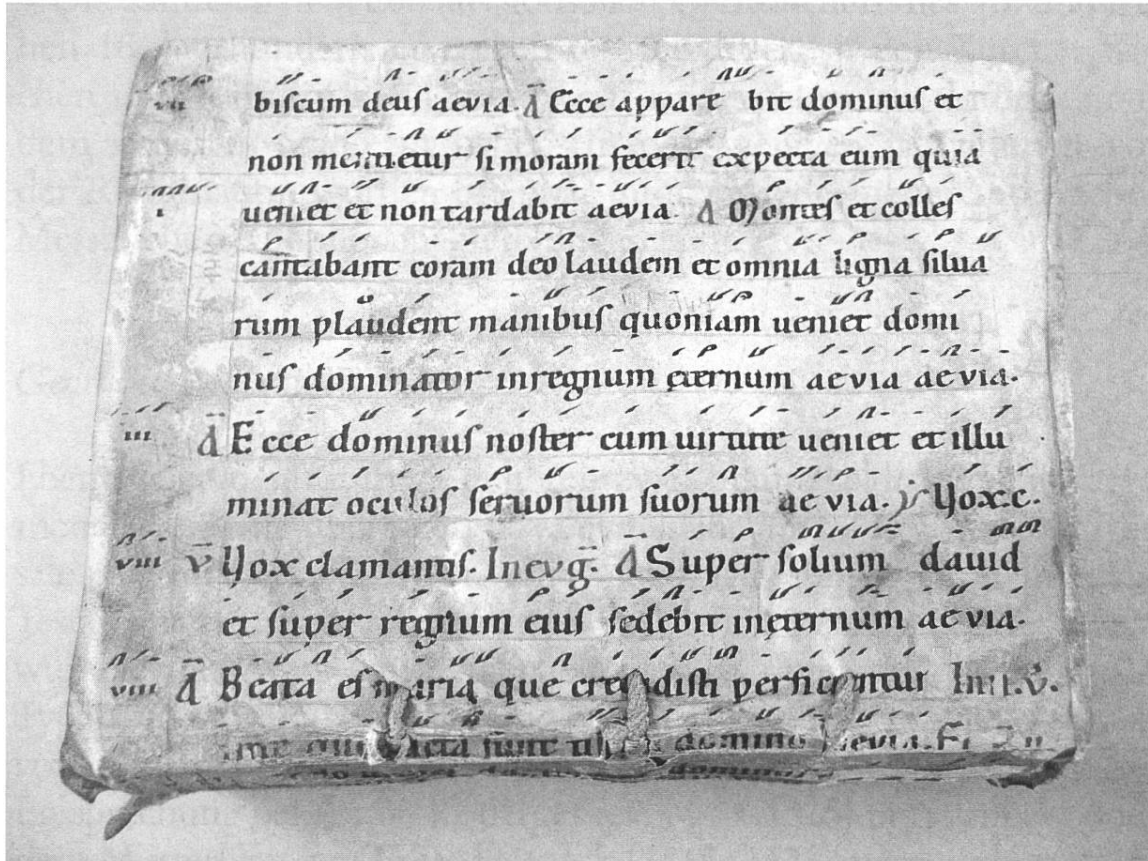 vii biscum deus aevia. A Ecce appare bit dominus et
non metietur si moram fecerit expecta eum quia
i ueniet et non tardabit aevia. A Montes et colles
cantabant coram deo laudem et omnia ligna silua
rum plaudent manibus quoniam ueniet domi
nus dominator inregnum ęternum aevia aevia.
iii A Ecce dominus noster cum uirtute ueniet et illu
minat oculos seruorum suorum aevia. Vox.c.
viii V Vox clamantis. Inevg. A Super solium dauid
et super regnum eius sedebit inęternum aevia.
viii A Beata es maria que credidisti perficientur
facta sunt domino aevia.
dominus